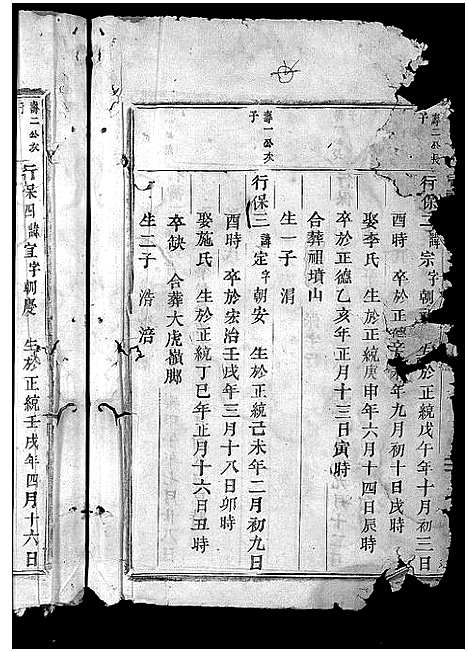 壽二公長
子
行保二諱宗字朝 生於正統戊午年十月初三日
酉時 卒於正德辛 年九月初十日戌時
娶李氏 生於正統庚申年六月十四日辰時
卒於正德乙亥年正月十三日寅時
合葬祖墳山
生一子 渭
壽一公次
子
行保三諱定字朝安 生於正統己未年二月初九日
酉時 卒於宏治壬戌年三月十八日卯時
娶施氏 生於正統丁巳年正月十六日丑時
卒缺 合葬大虎嶺腳
生二子 浩 涪
壽二公次
子
行保四諱宜字朝慶 生於正統壬戌年四月十六日